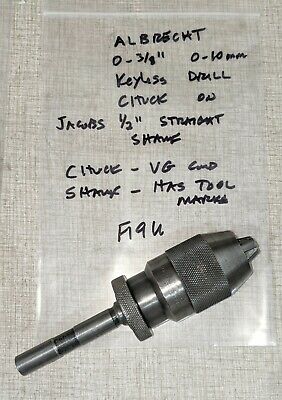 ALBRECHT
0-3/8" 0-10mm
Keyless DRILL
CHUCK ON
JACOBS 1/2" STRAIGHT
SHANK
CHUCK - VG COND
SHANK - HAS TOOL
MARKS